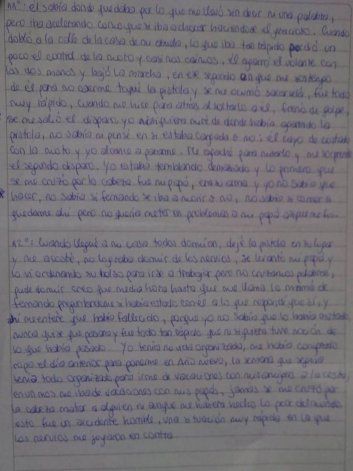 11°: el sabía donde quedaba por lo que me llevó sin decir ni una palabra,
pero iba acelerando como que se iba a chocar haciendose el canchero. Cuando
dobló a la calle de la casa de mi abuela, lo que iba tan rápido perdió un
poco el control de la moto y casi nos caímos, el agarró el volante con
las dos manos y bajó la marcha, en ese segundo en que me sostengo
de el para no caerme toqué la pistola y se me ocurrió sacarsela, fue todo
muy rápido, cuando me hice para atrás al soltarlo a el, frenó de golpe,
se me salió el disparo yo ni siquiera miré de donde había agarrado la
pistola, no sabía ni pensé en si estaba cargada o no. el cayó de costado
con la moto y yo atiné a pararme. Me agaché para mirarlo y me
el segundo disparo. Yo estaba temblando demasiado y lo primero que
se me cruzó por la cabeza fue mi papá, era su arma y yo no sabía que
hacer, no sabía si fernando se iba a morir o no, no sabía si correr o
quedarme ahí pero no quería meter en problemas a mi papá
12°: Cuando llegué a mi casa todos dormían, dejé la pistola en su lugar
y me acosté, no lograba dormir de los nervios, se levantó mi papá y
lo vi ordenando su bolso para irse a trabajar pero no cruzamos palabras,
pude dormir creo que media hora hasta que me llama la mamá de
fernando preguntandome si había estado con el a lo que respondí que si, y
ahí me enteré que había fallecido, porque yo no sabía que lo había matado
nunca quise que pasara y fue todo tan rápido que ni siquiera tuve noción de
lo que había pasado. Yo tenía mi vida organizada, me había comprado
ropa el día anterior para ponerme en Año nuevo, la semana que seguía
tenía todo organizado para irme de vacaciones con mis amigos a la costa,
en unos meses me iba de vacaciones con mis papás, jamás se me cruzó por
la cabeza matar a alguien ni aunque me hubiera hecho lo peor del mundo
esto fue un accidente horrible, una situación muy rápida en la que
los nervios me jugaron en contra.